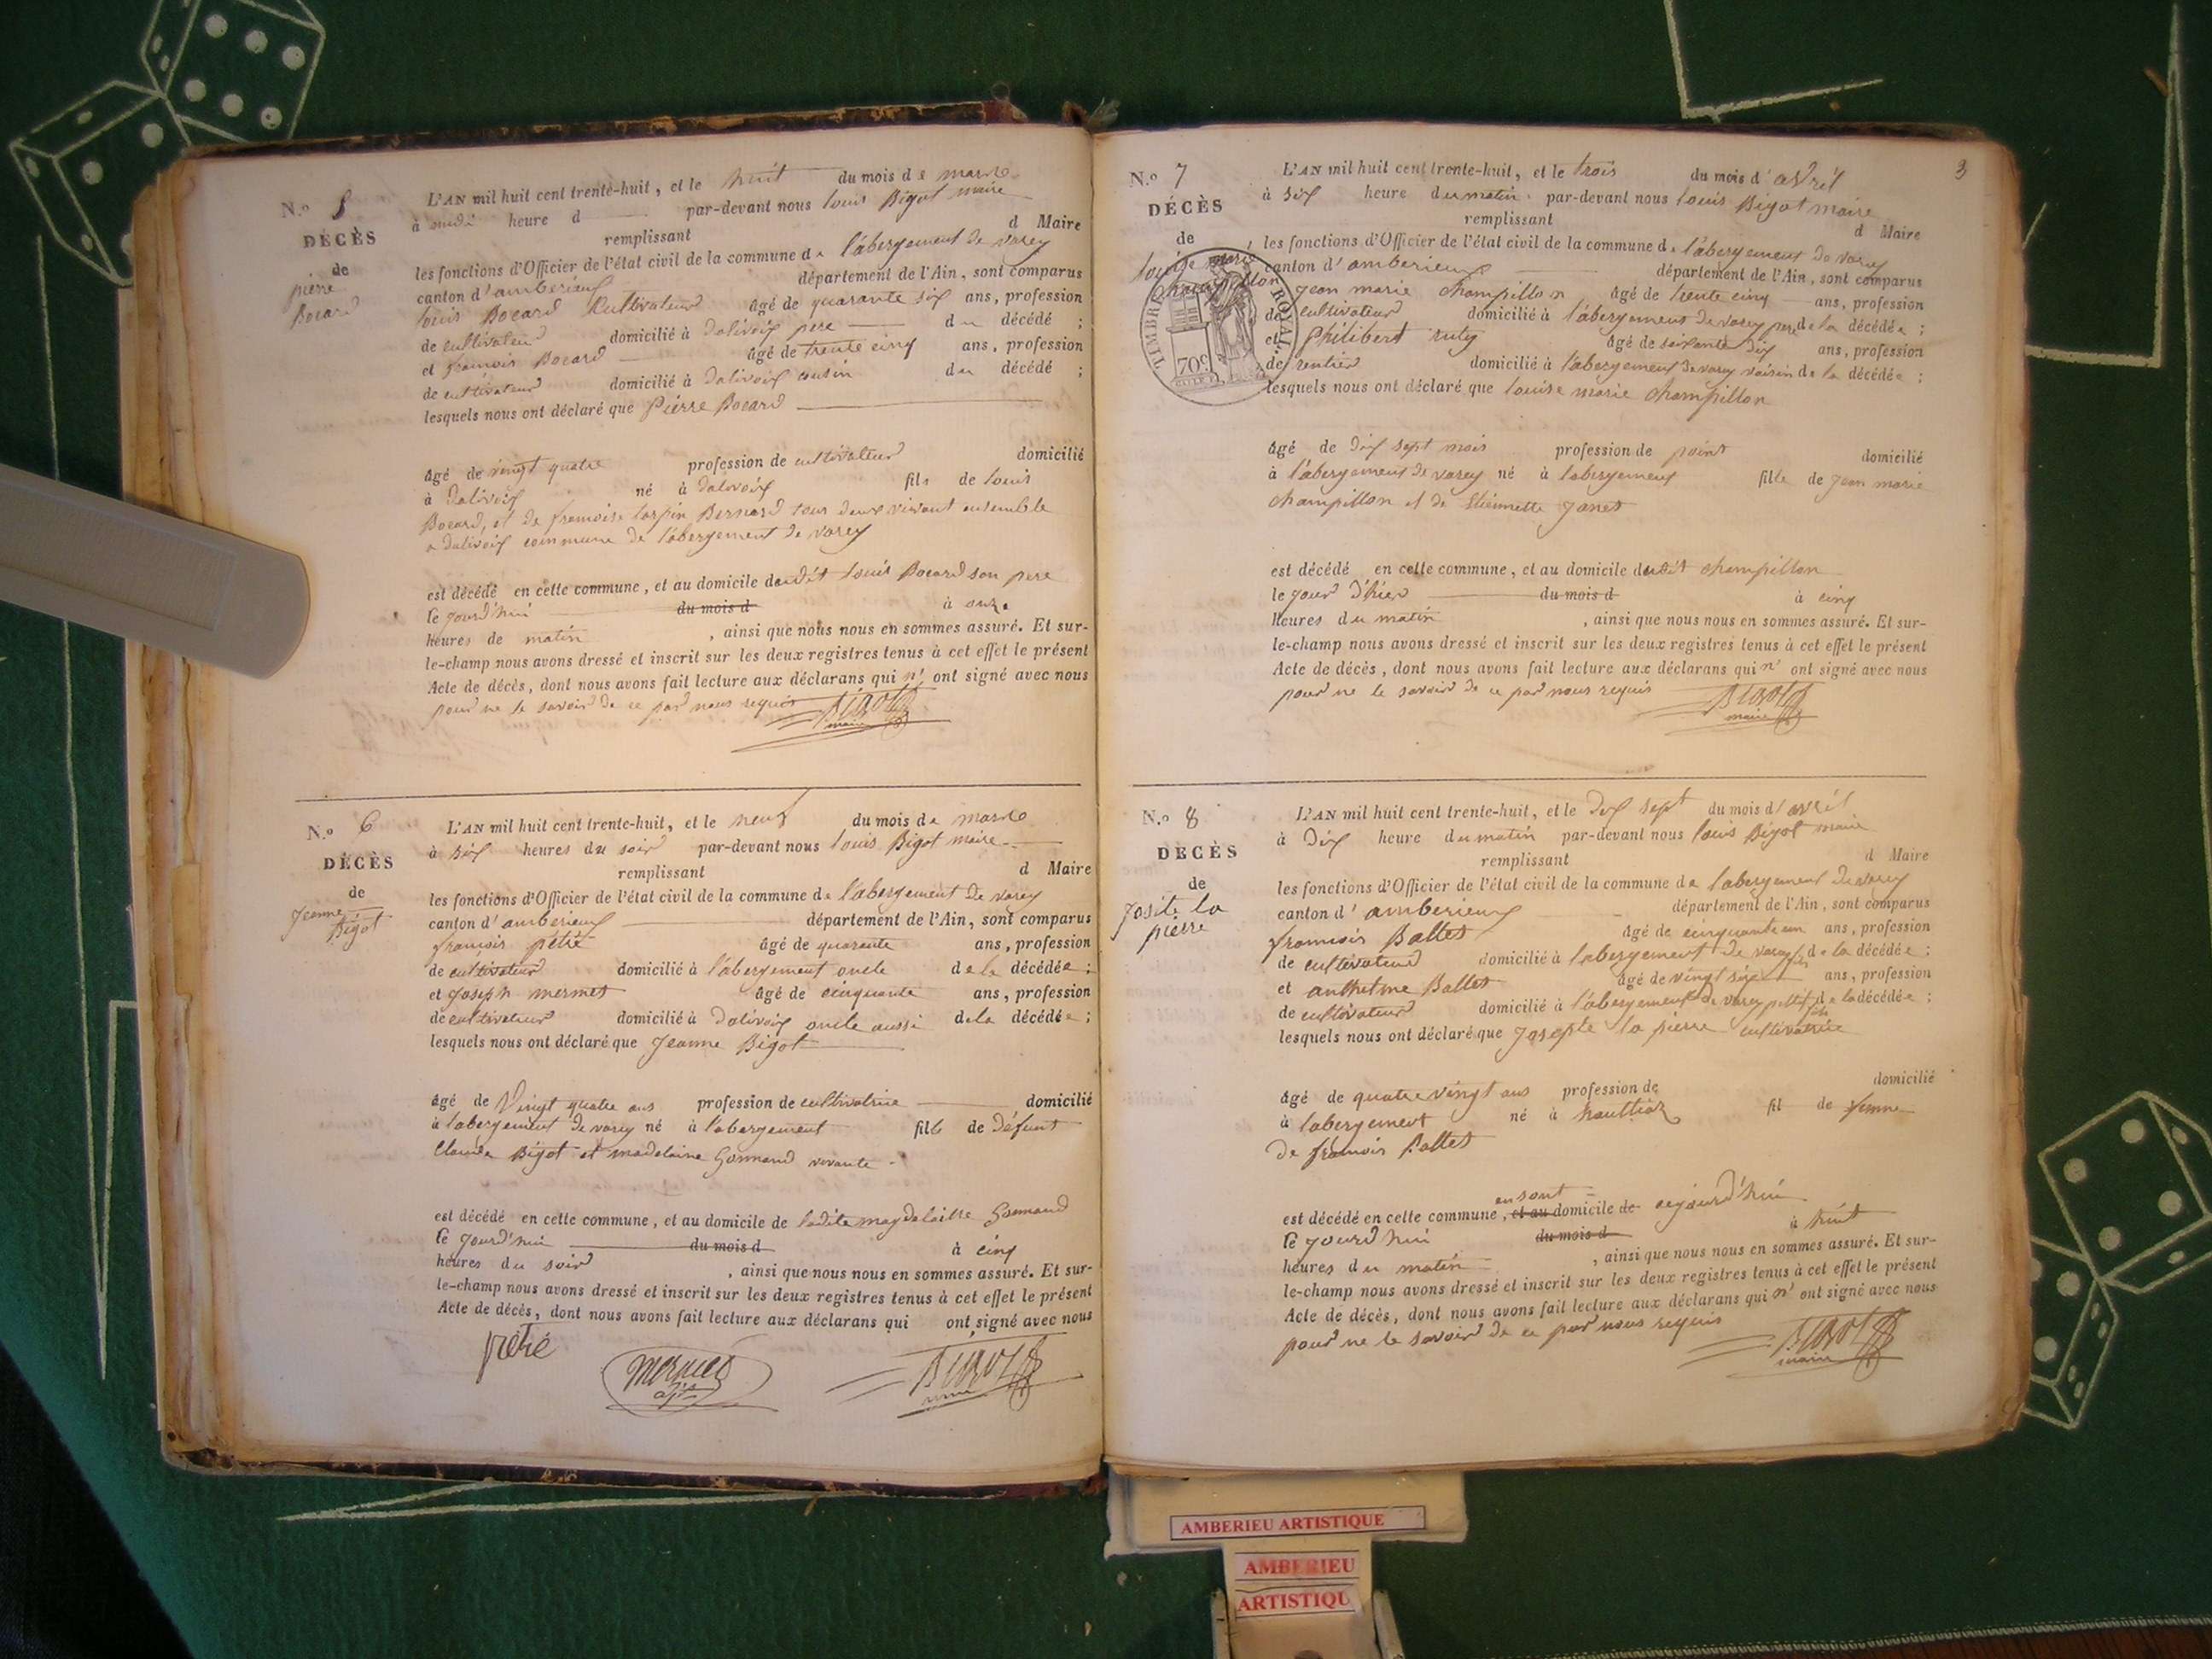 N.o 5
DÉCÈS
de
pierre
Bocard
L'AN mil huit cent trente-huit, et le huit du mois de mars
à midi heure d par-devant nous louis Bigot maire
remplissant d Maire
les fonctions d'Officier de l'état civil de la commune de l'abergement de varey
canton d'amberieux département de l'Ain, sont comparus
louis Bocard Cultivateur âgé de quarante six ans, profession
de cultivateur domicilié à dalivoix pere du décédé ;
et francois Bocard âgé de trente cinq ans, profession
de cultivateur domicilié à Dalivoix cousin du décédé ;
lesquels nous ont déclaré que Pierre Bocard
âgé de vingt quatre profession de cultivateur domicilié
à Dalivoix né à dalivoix fils de louis
Bocard, et de francoise Bernard tous deux vivant ensemble
a dalivoix commune de l'abergement de varey
est décédé en cette commune, et au domicile dudit louis Bocard son pere
le jourd'hui du mois d à onze
heures de matin , ainsi que nous nous en sommes assuré. Et sur-
le-champ nous avons dressé et inscrit sur les deux registres tenus à cet effet le présent
Acte de décès, dont nous avons fait lecture aux déclarans qui n' ont signé avec nous
pour ne le savoir de ce par nous requis BIGOT
maire
N.o 6
DÉCÈS
de
Jeanne
Bigot
L'AN mil huit cent trente-huit, et le neuf du mois de mars
à six heures du soir par-devant nous louis Bigot maire
remplissant d Maire
les fonctions d'Officier de l'état civil de la commune de l'abergement de varey
canton d'amberieux département de l'Ain, sont comparus
francois pétré âgé de quarante ans, profession
de cultivateur domicilié à l'abergement oncle de la décédée ;
et joseph mermet âgé de cinquante ans, profession
de cultivateur domicilié à Dalivoix oncle aussi de la décédée ;
lesquels nous ont déclaré que Jeanne Bigot
âgé de Vingt quatre ans profession de cultivatrice domicilié
à l'abergement de varey né à l'abergement fille de défunt
Claude Bigot et madelaine Gonnand vivante
est décédé en cette commune, et au domicile de ladite magdelaine Gonnand
le jourd'hui du mois d à cinq
heures du soir , ainsi que nous nous en sommes assuré. Et sur-
le-champ nous avons dressé et inscrit sur les deux registres tenus à cet effet le présent
Acte de décès, dont nous avons fait lecture aux déclarans qui ont signé avec nous
pétré mermet BIGOT
3
N.o 7
DÉCÈS
de
louise marie
champillon
TIMBRE ROYAL
70c
L'AN mil huit cent trente-huit, et le trois du mois d'avril
à six heure du matin par-devant nous louis Bigot maire
remplissant d Maire
les fonctions d'Officier de l'état civil de la commune de l'abergement de varey
canton d'amberieux département de l'Ain, sont comparus
jean marie champillon âgé de trente cinq ans, profession
de cultivateur domicilié à l'abergement de varey pere de la décédée ;
et Philibert ruty âgé de soixante dix ans, profession
de rentier domicilié à l'abergement de varey voisin de la décédée ;
lesquels nous ont déclaré que louise marie champillon
âgé de dix sept mois profession de point domicilié
à l'abergement de varey né à l'abergement fille de jean marie
champillon et de Etiennette Janet
est décédé en cette commune, et au domicile dudit champillon
le jour d'hier du mois d à cinq
heures du matin , ainsi que nous nous en sommes assuré. Et sur-
le-champ nous avons dressé et inscrit sur les deux registres tenus à cet effet le présent
Acte de décès, dont nous avons fait lecture aux déclarans qui n' ont signé avec nous
pour ne le savoir de ce par nous requis BIGOT
maire
N.o 8
DÉCÈS
de
la
pierre
L'AN mil huit cent trente-huit, et le dix sept du mois d'avril
à Dix heure du matin par-devant nous louis Bigot maire
remplissant d Maire
les fonctions d'Officier de l'état civil de la commune de l'abergement de varey
canton d'amberieux département de l'Ain, sont comparus
francois Ballet âgé de cinquante un ans, profession
de cultivateur domicilié à l'abergement de varey fils de la décédée ;
et anthelme Ballet âgé de vingt six ans, profession
de cultivateur domicilié à l'abergement de varey petit fils de la décédée ;
lesquels nous ont déclaré que Josephe la pierre cultivatrice
âgé de quatre vingt ans profession de domicilié
à l'abergement né à hauttiaz fil de femme
de francois Ballet
en sont
est décédé en cette commune, et au domicile de cejourd'hui
le jourd'hui du mois d à huit
heures du matin , ainsi que nous nous en sommes assuré. Et sur-
le-champ nous avons dressé et inscrit sur les deux registres tenus à cet effet le présent
Acte de décès, dont nous avons fait lecture aux déclarans qui n' ont signé avec nous
pour ne le savoir de ce par nous requis BIGOT
maire
AMBERIEU ARTISTIQUE
AMBERIEU
ARTISTIQU